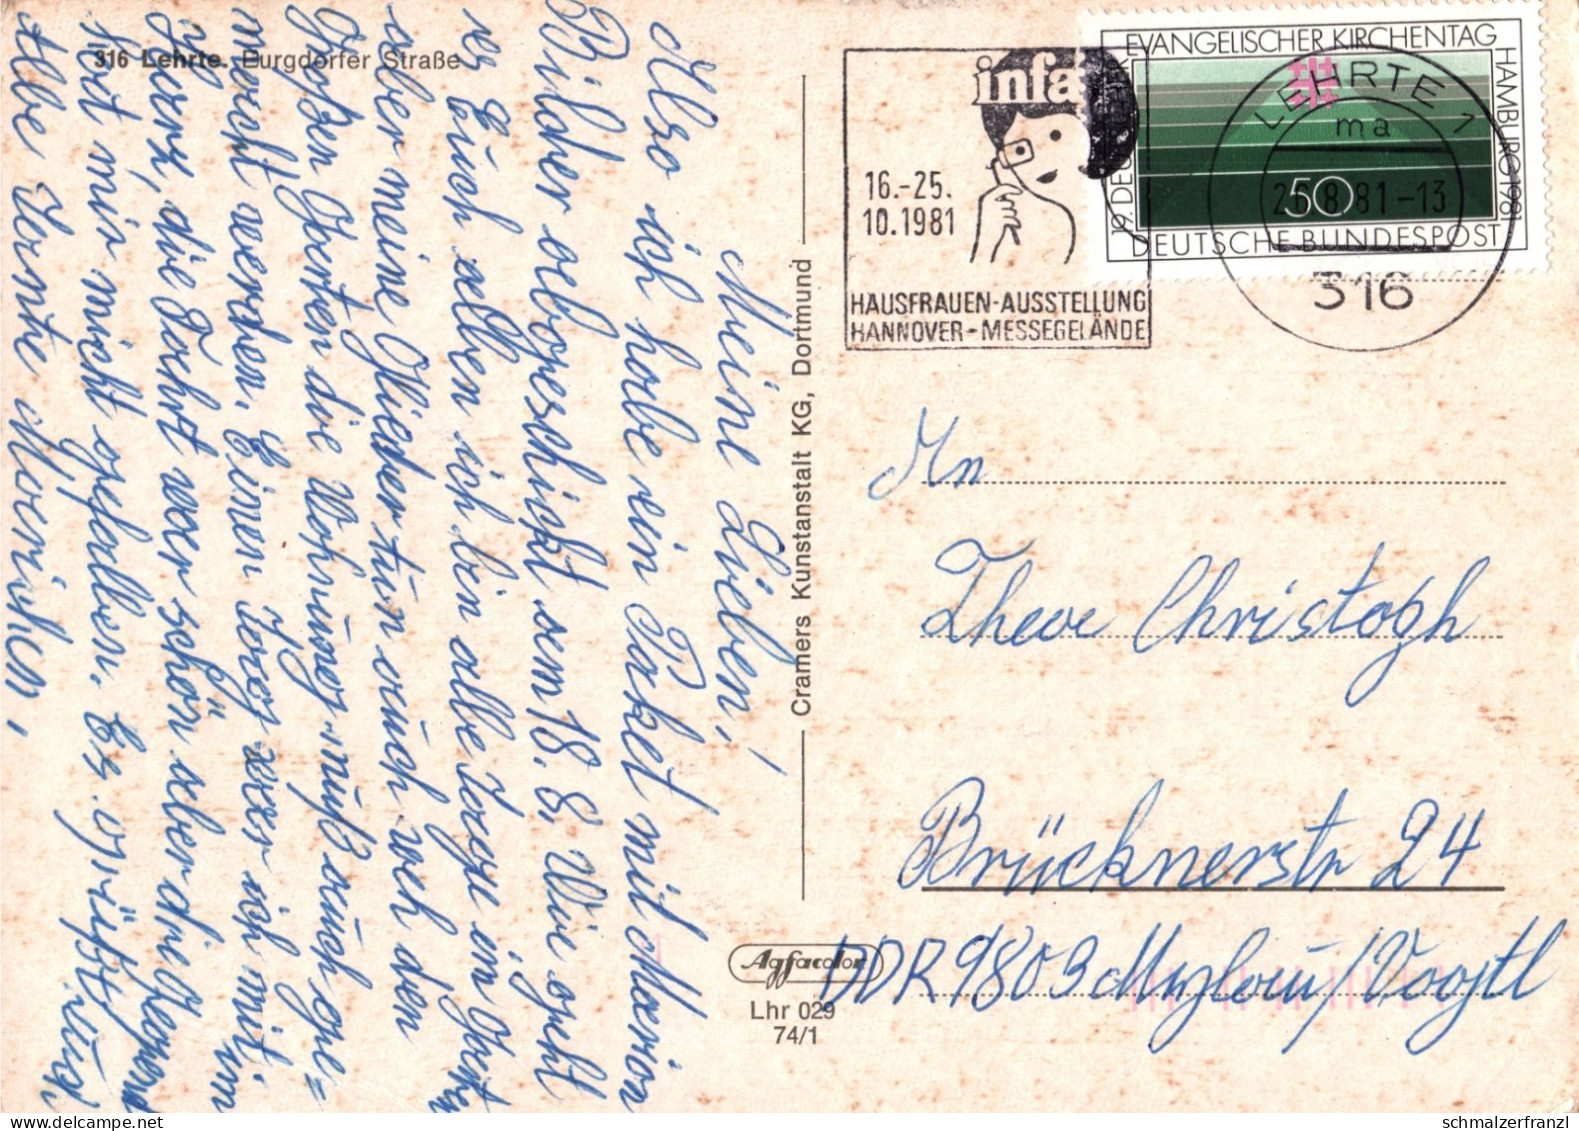 316 Lehrte. Burgdorfer Straße
Meine Lieben!
Also ich habe ein Paket mit Marion
Bilder abgeschickt am 18. 8. Wie geht
es Euch selber ich bin alle Tage im Garten
aber meine Glieder tun auch weh den
Großen Garten die Wohnung, muß auch ge=
macht werden. Einen Tag war ich mit am
Harz, die Fahrt war schön aber die Gegend
hat mir nicht gefallen. Es grüßt und
alle Tante
Cramers Kunstanstalt KG, Dortmund
Agfacolor
Lhr 029
74/1
infa
16.-25.
10.1981
HAUSFRAUEN-AUSSTELLUNG
HANNOVER-MESSEGELÄNDE
EVANGELISCHER KIRCHENTAG
HAMBURG 1981
19. DEU
50
DEUTSCHE BUNDESPOST
LEHRTE 1
ma
8.81-13
316
An
Christoph
Brücknerstr 24
DDR 9803 Mylau/Vogtl
www.schmalzerfranzl.com